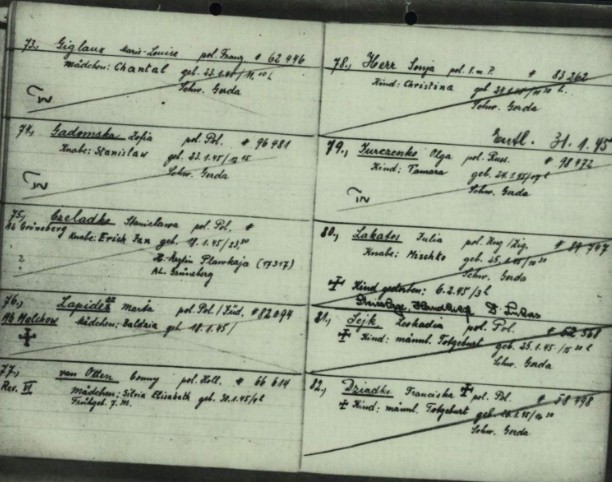 73., Giglaux Marie-Louise pol. Franz. # 62 446
Mädchen: Chantal geb. 23.1.45/11,00 h
Schw. Gerda
74., Gadomska Zofia pol. Pol. # 96 981
Knabe: Stanislaw geb. 23.1.45/
Schw. Gerda
75., Czeladko Stanislawa pol. Pol. #
AL Grüneberg Knabe: Erich Jan geb. 18.1.45/23,30
H. Plawskaja (17317)
AL. Grüneberg
76., Lapides Marta pol. Pol./Jüd. # 82 094
AL Malchow Mädchen: geb. 18.1.45/
77., van Otten Conny pol. Holl. # 66 614
Rev. VI Mädchen: Silvia Elisabeth geb. 30.1.45/9 h
Frühgeb. 7. M.
78., Herr Sonja pol. # 83 262
Kind: Christina geb.
Schw. Gerda
Entl. 31.1.45
79., Jurczenko Olga pol. Russ. # 98 472
Kind: Tamara geb. 24.1.45/
Schw. Gerda
80., Lakatos Julia pol. Ung/Zig. #
Knabe: Mischko geb. 25.1.45/
Schw. Gerda
Kind gestorben: 6.2.45/3 h
81., Sejk Leokadia pol. Pol. #
Kind: männl. Totgeburt geb. 25.1.45/
Schw. Gerda
82., Dziadko Franciska pol. Pol. # 58 798
Kind: männl. Totgeburt geb.
Schw. Gerda